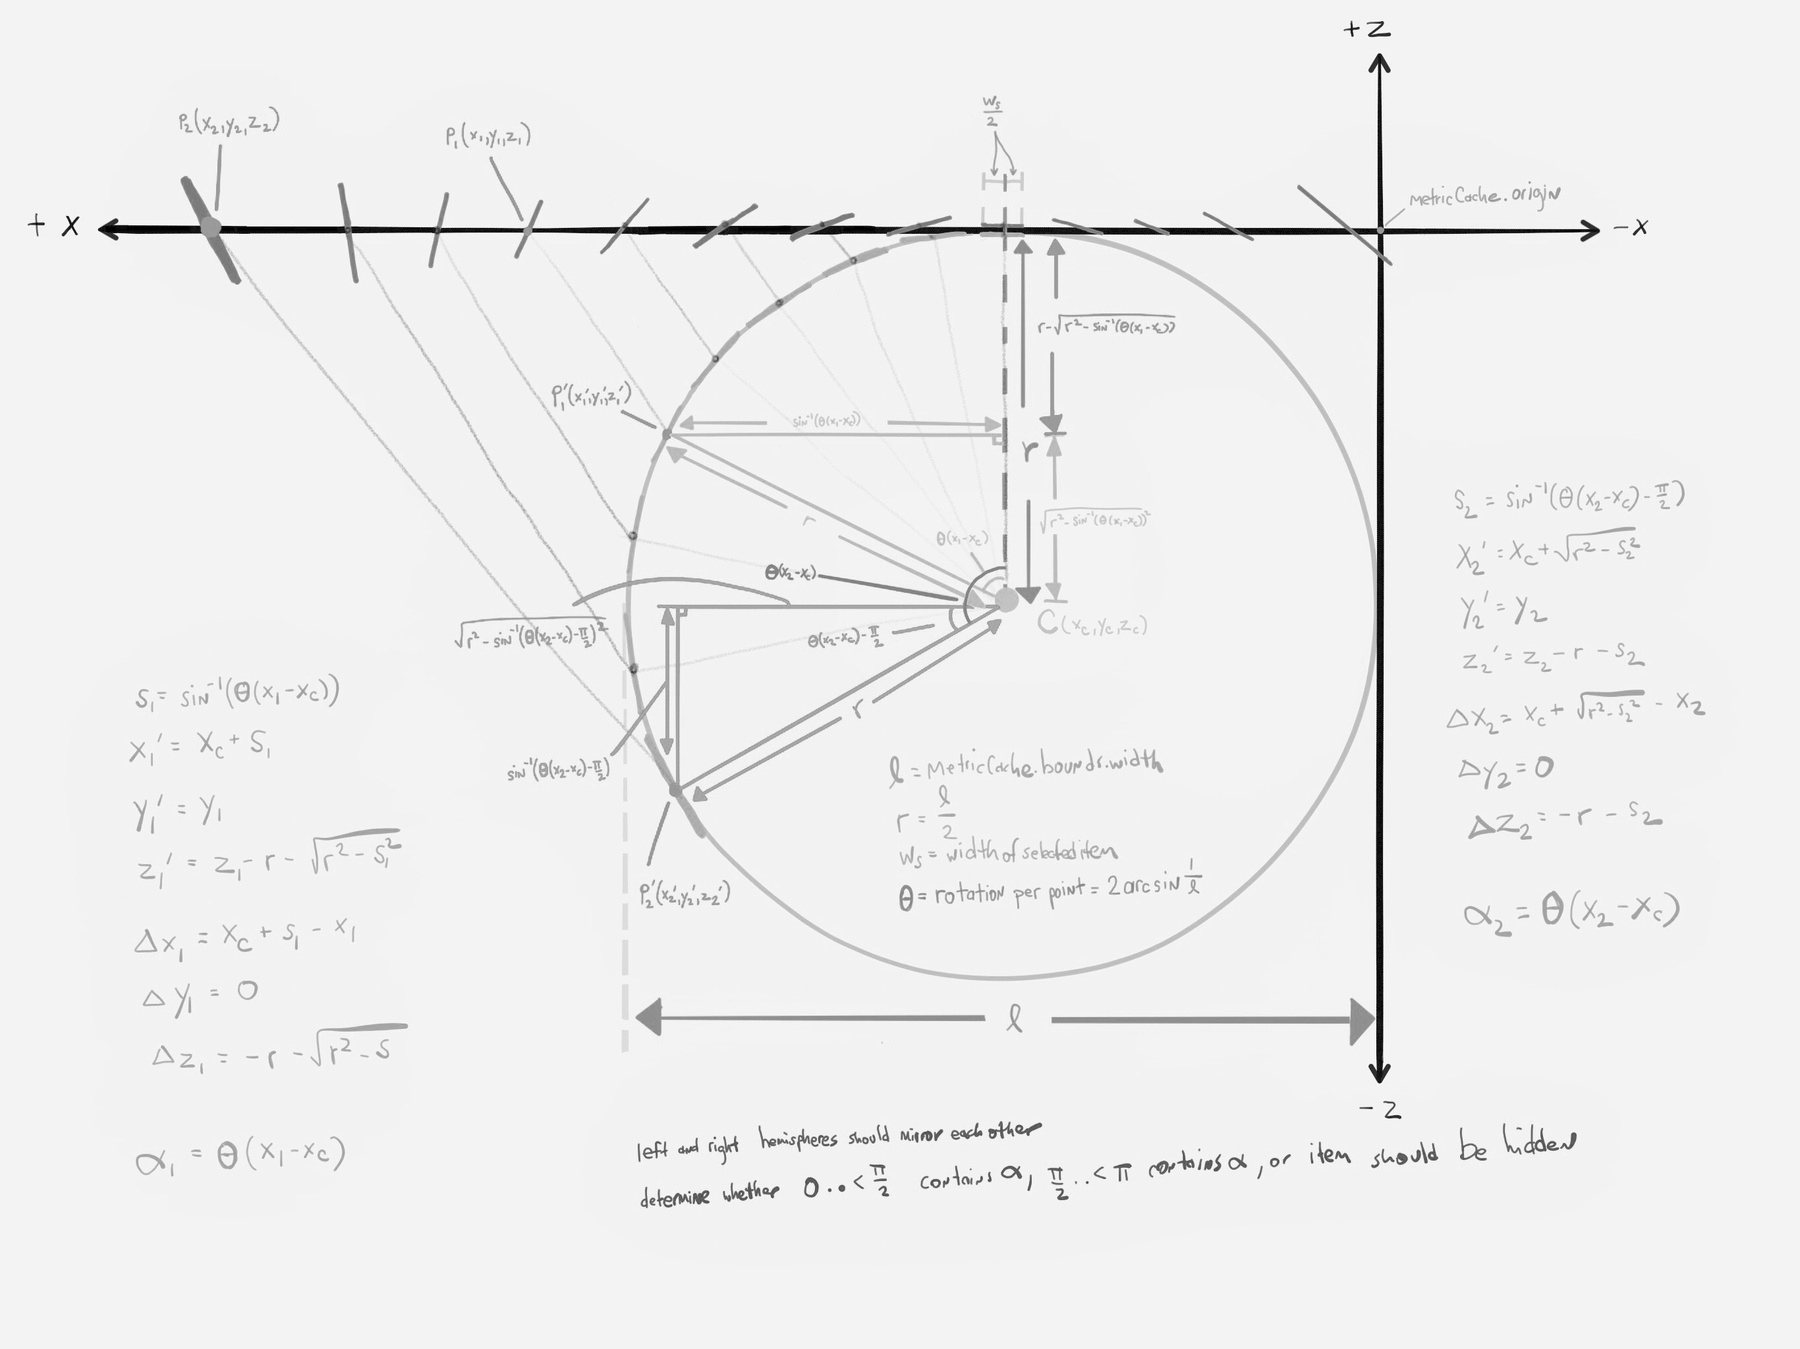 +Z
W_s/2
P₂(x₂,y₂,z₂)
P₁(x₁,y₁,z₁)
MetricCache.origin
+ X
-X
r-√(r²-sin⁻¹(θ(x₁-x_c)))
P₁'(x₁',y₁',z₁')
sin⁻¹(θ(x₁-x_c))
r
r
√(r²-sin⁻¹(θ(x₁-x_c))²)
θ(x₁-x_c)
θ(x₂-x_c)
C(x_c,y_c,z_c)
√(r²-sin⁻¹(θ(x₂-x_c)-π/2)²)
θ(x₂-x_c)-π/2
r
sin⁻¹(θ(x₂-x_c)-π/2)
P₂'(x₂',y₂',z₂')
l = MetricCache.bounds.width
r = l/2
W_s = width of selected item
θ = rotation per point = 2 arcsin 1/l
l
S₁ = sin⁻¹(θ(x₁-x_c))
x₁' = x_c + S₁
y₁' = y₁
z₁' = z₁ - r - √(r² - S₁²)
Δx₁ = x_c + s₁ - x₁
Δy₁ = 0
Δz₁ = -r - √(r² - S)
α₁ = θ(x₁-x_c)
S₂ = sin⁻¹(θ(x₂-x_c)-π/2)
x₂' = x_c + √(r² - S₂²)
y₂' = y₂
z₂' = z₂ - r - S₂
Δx₂ = x_c + √(r² - S₂²) - x₂
Δy₂ = 0
Δz₂ = -r - S₂
α₂ = θ(x₂-x_c)
-Z
left and right hemispheres should mirror each other
determine whether 0..<π/2 contains α, π/2..<π contains α, or item should be hidden